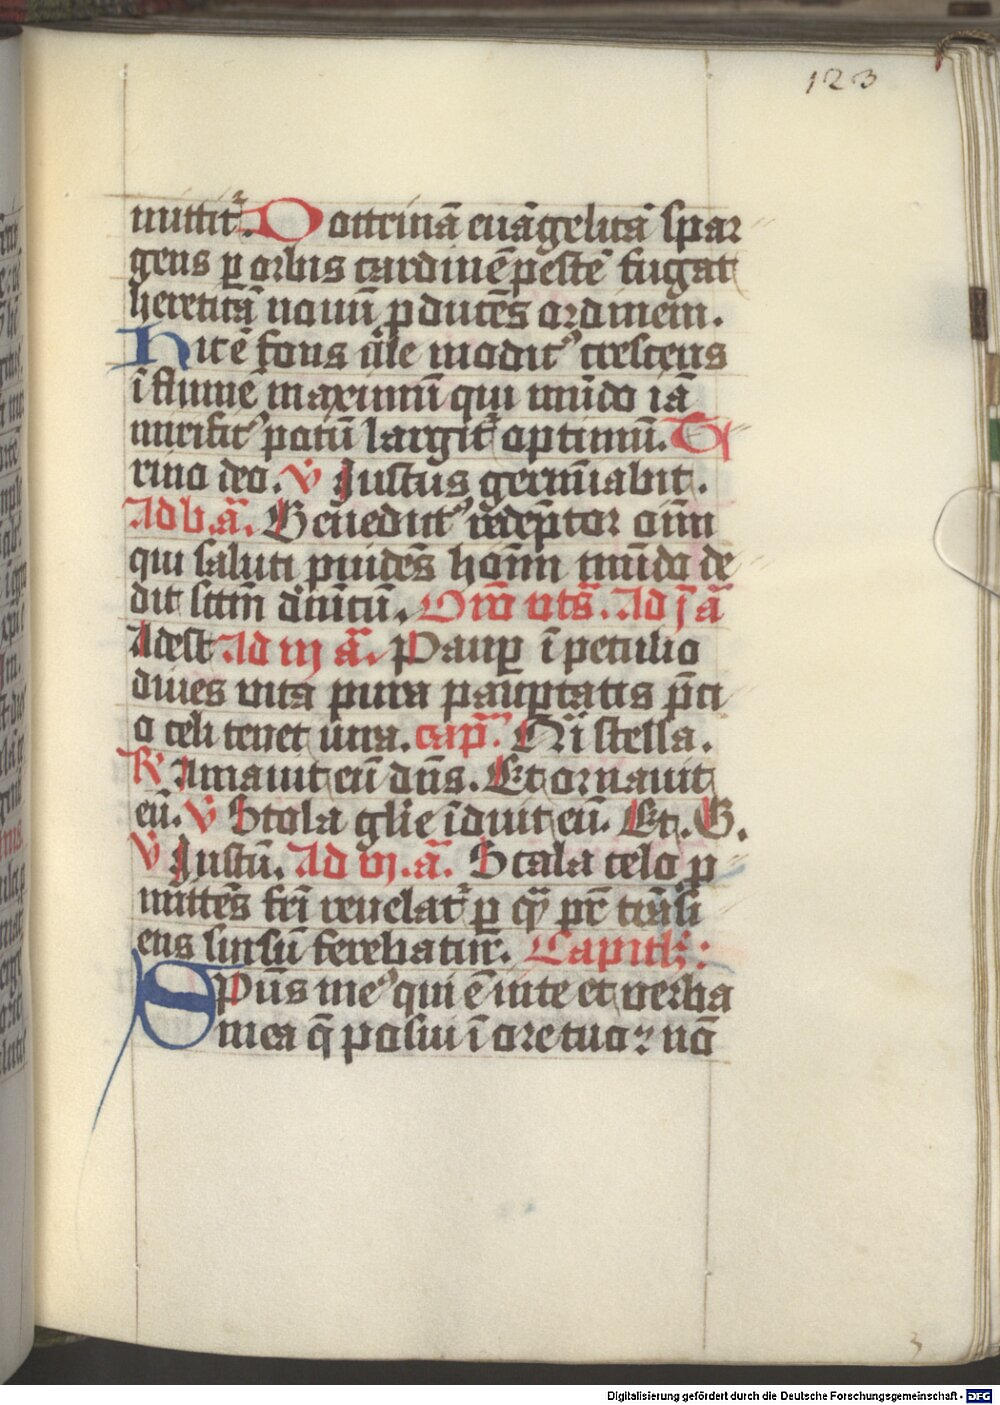 123
mittit᷑. Doctrinā euāgelicā spar
gens ꝑ orbis cardinē pestē fugat
hereticā nouū ꝓducēs ordinem.
Hic ē fons ille modicꝰ crescens
ī flumē maximū qui mūdo iā
mirificꝰ potū largit᷑ optimū. T
rino deo. V Justus germīabit.
Ad b. a᷃. Bn̄edictꝰ redēptor oīm
qui saluti ꝓuidēs hoīm mūdo de
dit sctm̄ dn̄icū. Oro͞ vts᷃. Ad j a᷃
Adest Ad iij a᷃. Paupꝑ ī peculio
diues vita pura pauꝑtatis p̄ci
o celi tenet iura. cap᷃. Q͛i stella.
R Amauit eū dn̄s. Et ornauit
eū. V Stola glīe īduit eū. Et. G.
V Justū. Ad vj. a᷃. Scala celo ꝓ
mittēs frī reuelat᷑ ꝑ qᷓ pr̄ trāsi
ens sursū ferebatur. Capitl̄ꝫ:
Spūs meꝰ qui ē in te et verba
mea q̄ posui ī ore tuo ⁊ nō
3
Digitalisierung gefördert durch die Deutsche Forschungsgemeinschaft - DFG